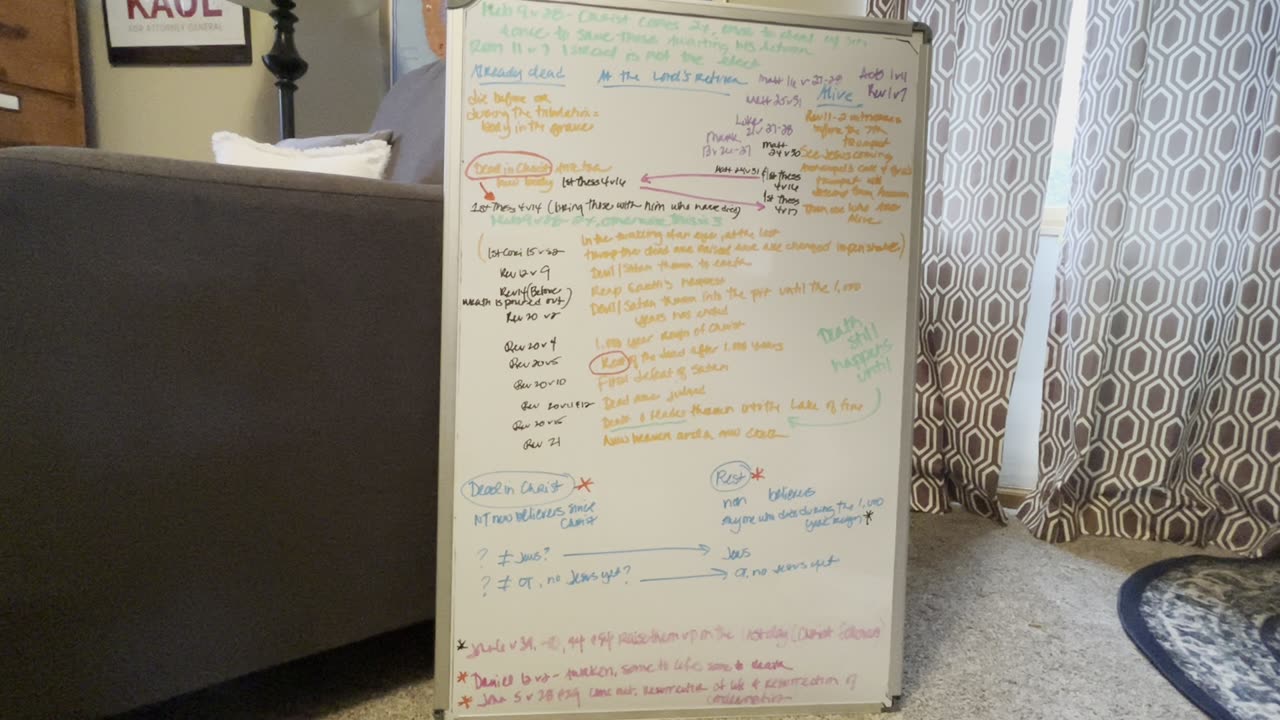 KAUL
FOR ATTORNEY GENERAL
Heb 9 v 28 - Christ comes 2x, once to deal w/ sin,
once to save those awaiting his return
Rom 11 v 7 Israel is not the elect
Already dead
At the Lord's Return
Matt 16 v 27-28
Acts 1v11
Rev 1v7
Matt 25v31
Alive
die before or
during the tribulation =
body in the grave
Rev 11 - 2 witnesses
before the 7th
trumpet
Luke
21 v 27-28
Mark
13 v 26-27
Matt
24 v 30
See Jesus coming
Dead in Christ
new body 1st Thess 4 v 16
Matt 24 v 31
1st Thess
4 v 16
Archangel's
trumpet
descend from heaven
1st Thess 4 v 14 (bring those with him who have died)
1st Thess
4 v 17
Then we who are
Alive
Heb 9 v 28 - 2x, otherwise this is 3
(1st Cori 15 v 52
In the twinkling of an eye, at the last
trump the dead are raised
are changed imperishable)
Rev 12 v 9
Devil/Satan thrown to earth
Rev 14 (Before
wrath is poured out)
Reap Earth's Harvest
Rev 20 v 2
Devil/Satan thrown into the pit until the 1,000
years has ended
Rev 20 v 4
1,000 year reign of Christ
Rev 20 v 5
Rest of the dead after 1,000 years
Rev 20 v 10
Final defeat of Satan
Rev 20 v 11 & 12
Dead are judged
Death & Hades thrown into the Lake of fire
Rev 21
New heaven and a new earth
Death
still
happens
until
Dead in Christ *
Rest *
NT new believers since
Christ
non believers
Anyone who dies during the 1,000
year reign *
? ≠ Jews?
Jews
? ≠ OT, no Jesus yet?
OT, no Jesus yet
* John 6 v 39, 40, 44 & 54 Raise them up on the last day
* Daniel 12 v 2 - awaken, some to life, some to death
* John 5 v 28 & 29 come out, resurrection of life & resurrection of
condemnation